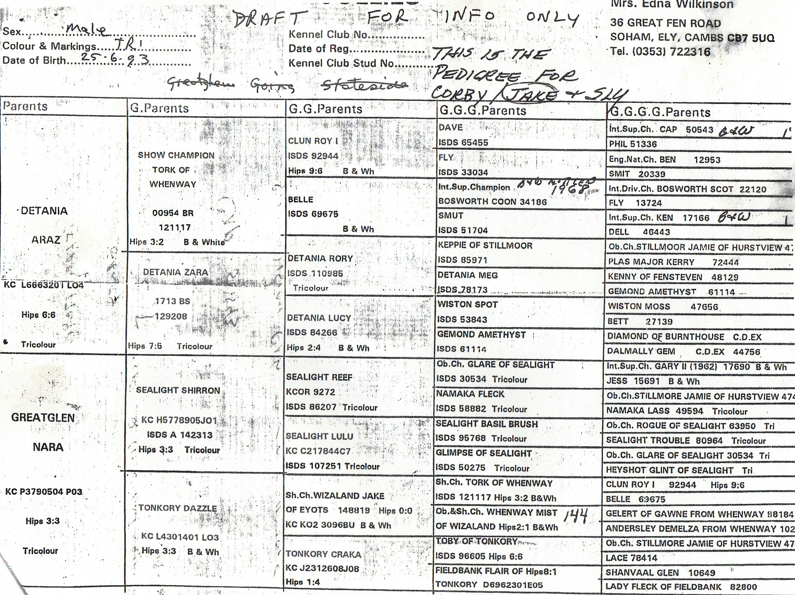 DRAFT FOR INFO ONLY
Mrs. Edna Wilkinson
36 GREAT FEN ROAD
SOHAM, ELY, CAMBS CB7 5UQ
Tel. (0353) 722316
Sex Male
Colour & Markings TRI
Date of Birth 25-6-93
Kennel Club No.
Date of Reg.
Kennel Club Stud No.
Greatglen Going Stateside
THIS IS THE
PEDIGREE FOR
CORBY / JAKE & SLY
Parents
DETANIA
ARAZ
KC L6663201 LO4
Hips 6:6
Tricolour
GREATGLEN
NARA
KC P3790504 P03
Hips 3:3
Tricolour
G.Parents
SHOW CHAMPION
TORK OF
WHENWAY
00954 BR
121117
Hips 3:2 B & White
DETANIA ZARA
1713 BS
129208
Hips 7:5 Tricolour
SEALIGHT SHIRRON
KC H5778905JO1
ISDS A 142313
Hips 3:3 Tricolour
TONKORY DAZZLE
KC L4301401 LO3
Hips 3:3 B & Wh
G.G.Parents
CLUN ROY I
ISDS 92944
Hips 9:6 B & Wh
BELLE
ISDS 69675
B & Wh
DETANIA RORY
ISDS 110985
Tricolour
DETANIA LUCY
ISDS 84266
Hips 2:4 B & Wh
SEALIGHT REEF
KCOR 9272
ISDS 86207 Tricolour
SEALIGHT LULU
KC C217844C7
ISDS 107251 Tricolour
Sh.Ch.WIZALAND JAKE
OF EYOTS 148819 Hips 0:0
KC KO2 3096BU B & Wh
TONKORY CRAKA
KC J2312608J08
Hips 1:4
G.G.G.Parents
DAVE
ISDS 65455
FLY
ISDS 33034
Int.Sup.Champion
1968
BOSWORTH COON 34186
SMUT
ISDS 51704
KEPPIE OF STILLMOOR
ISDS 85971
DETANIA MEG
ISDS 78173
WISTON SPOT
ISDS 53843
GEMOND AMETHYST
ISDS 61114
Ob.Ch. GLARE OF SEALIGHT
ISDS 30534 Tricolour
NAMAKA FLECK
ISDS 58882 Tricolour
SEALIGHT BASIL BRUSH
ISDS 95768 Tricolour
GLIMPSE OF SEALIGHT
ISDS 50275 Tricolour
Sh.Ch. TORK OF WHENWAY
ISDS 121117 Hips 3:2 B&Wh
Ob.&Sh.Ch. WHENWAY MIST 144
OF WIZALAND Hips2:1 B&Wh
TOBY OF TONKORY
ISDS 96605 Hips 6:6
FIELDBANK FLAIR OF Hips8:1
TONKORY D6962301E05
G.G.G.G.Parents
Int.Sup.Ch. CAP 50543 B&W
PHIL 51336
Eng.Nat.Ch. BEN 12953
SMIT 20339
Int.Driv.Ch. BOSWORTH SCOT 22120
FLY 13724
Int.Sup.Ch. KEN 17166 B&W
DELL 46443
Ob.Ch.STILLMOOR JAMIE OF HURSTVIEW 47
PLAS MAJOR KERRY 72444
KENNY OF FENSTEVEN 48129
GEMOND AMETHYST 61114
WISTON MOSS 47656
BETT 27139
DIAMOND OF BURNTHOUSE C.D.EX
DALMALLY GEM C.D.EX 44756
Int.Sup.Ch. GARY II (1962) 17690 B & Wh
JESS 15691 B & Wh
Ob.Ch.STILLMORE JAMIE OF HURSTVIEW 474
NAMAKA LASS 49594 Tricolour
Ob.Ch. ROGUE OF SEALIGHT 63950 Tri
SEALIGHT TROUBLE 80964 Tricolour
Ob.Ch. GLARE OF SEALIGHT 30534 Tri
HEYSHOT GLINT OF SEALIGHT Tri
CLUN ROY I 92944 Hips 9:6
BELLE 69675
GELERT OF GAWNE FROM WHENWAY 98184
ANDERSLEY DEMELZA FROM WHENWAY 102
Ob.Ch. STILLMORE JAMIE OF HURSTVIEW 47
LACE 78414
SHANVAAL GLEN 10649
LADY FLECK OF FIELDBANK 82800